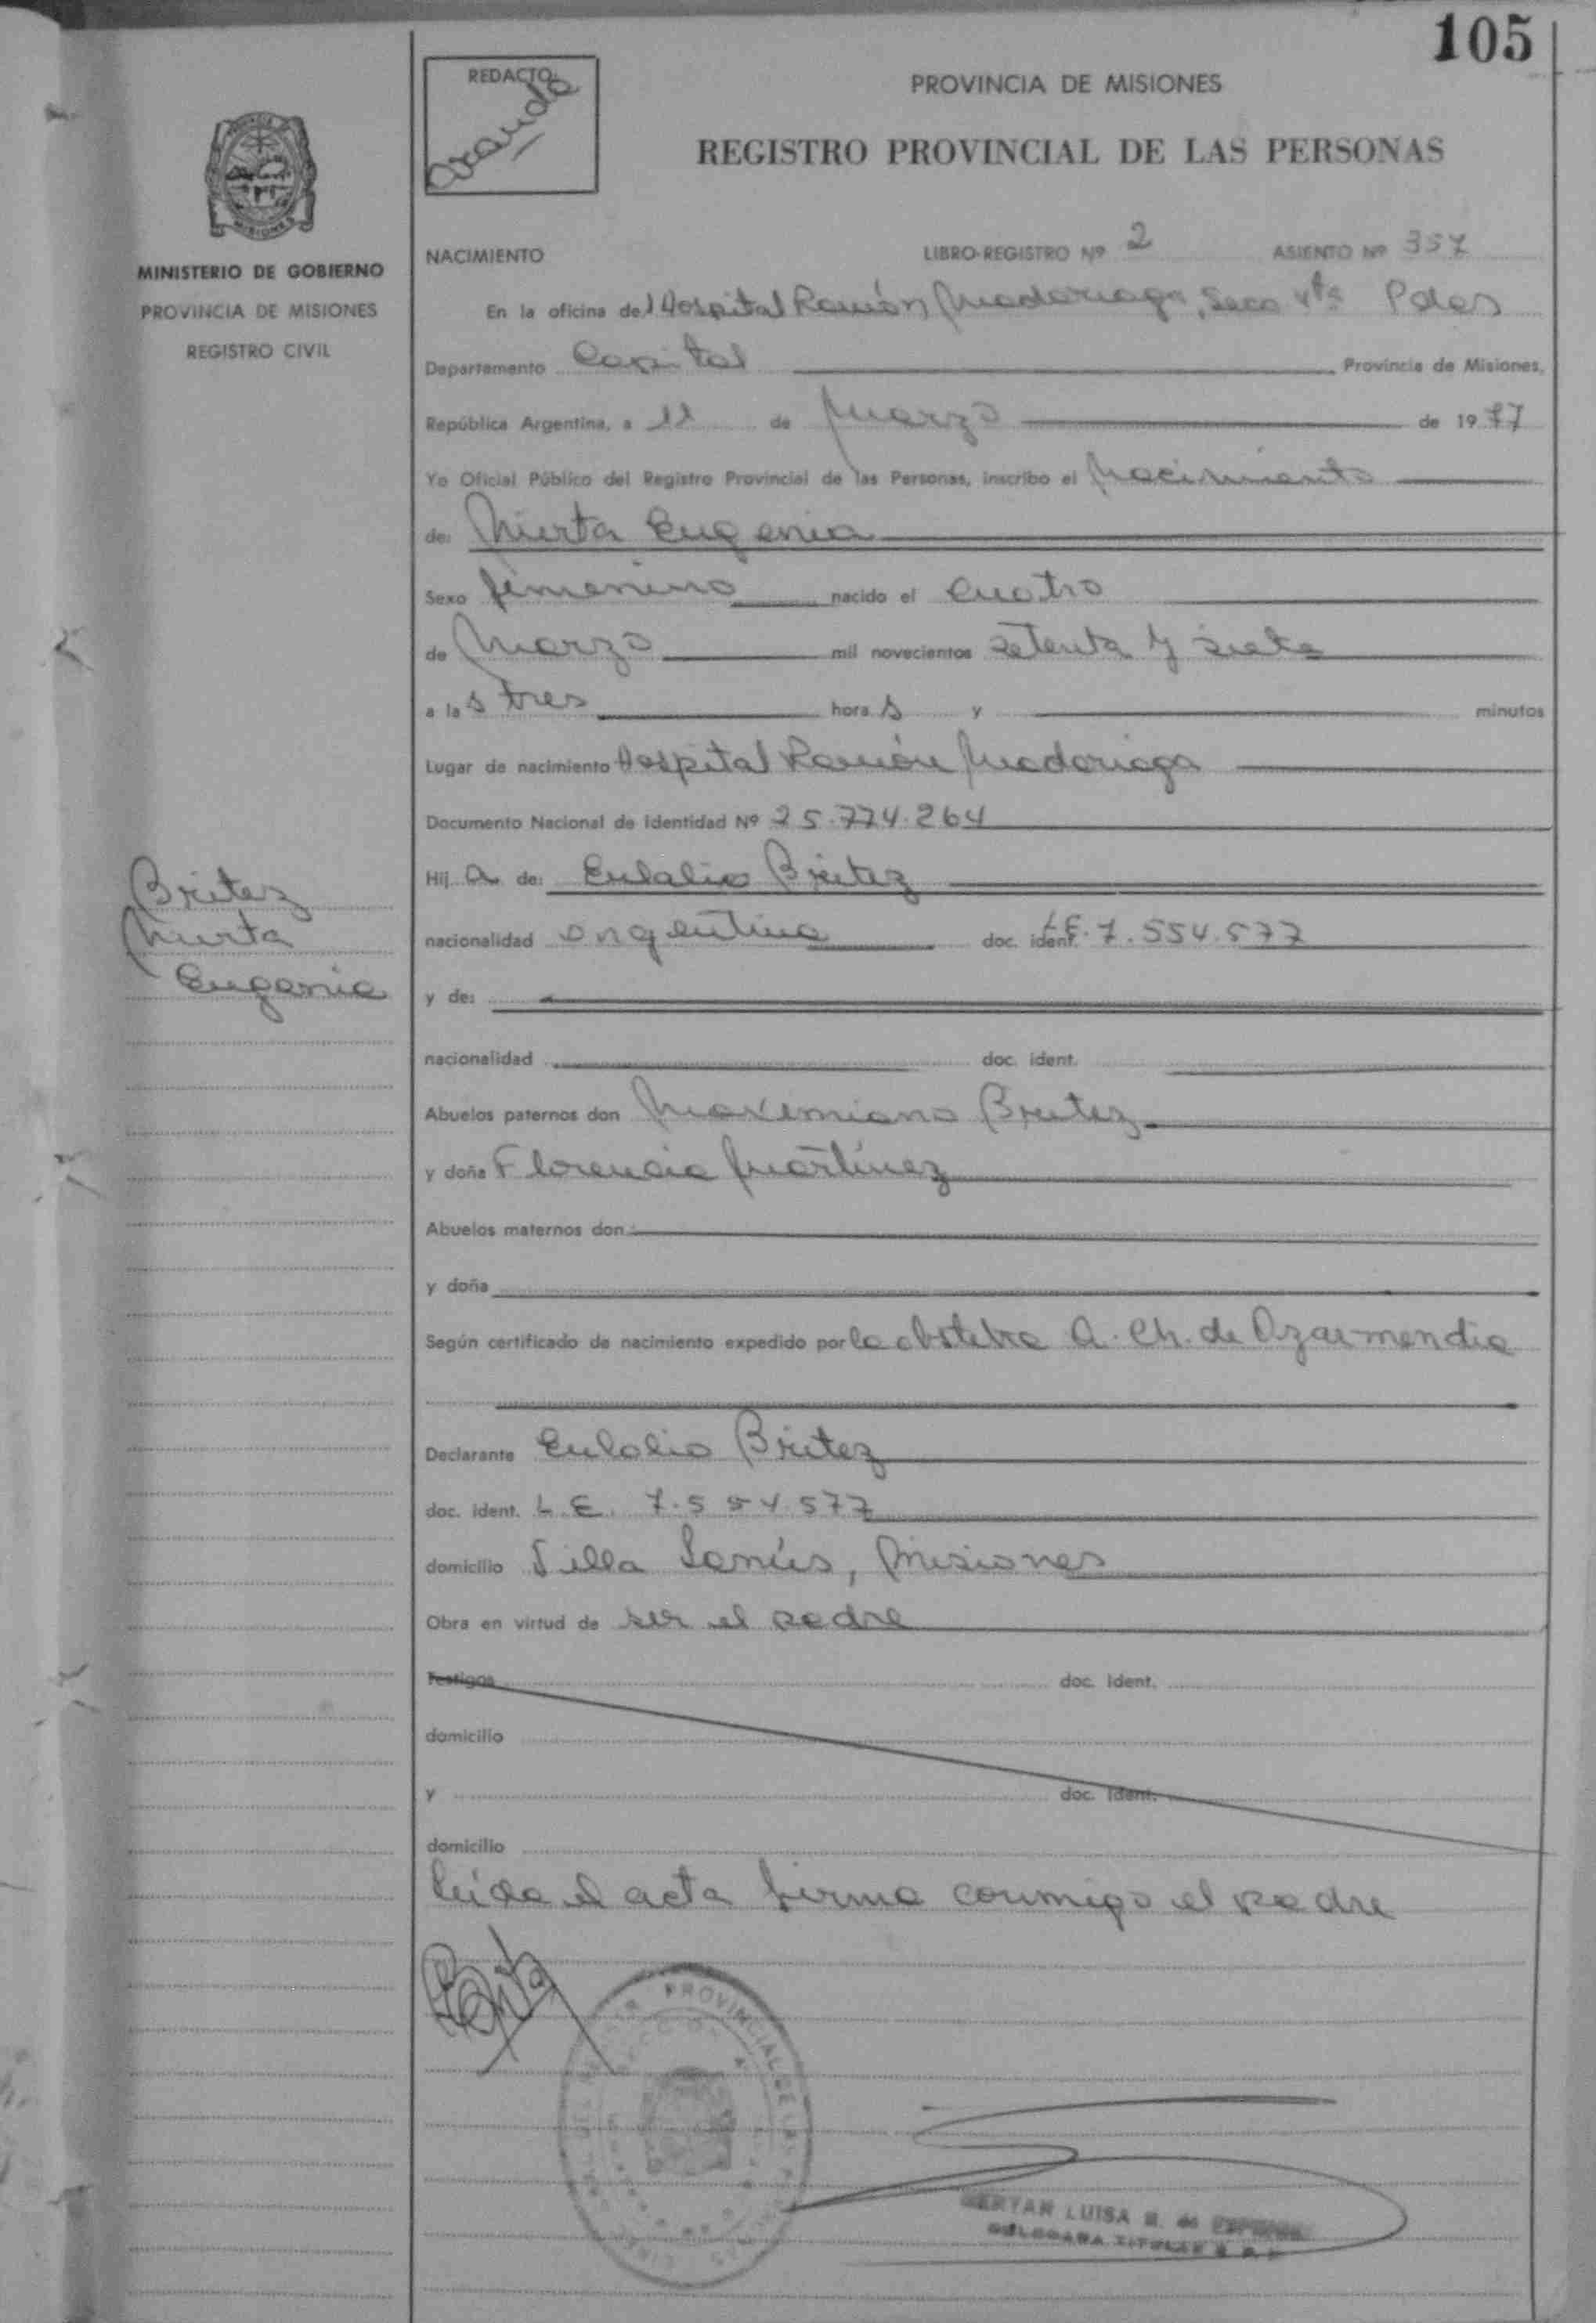 105
REDACTO:
Aranda
PROVINCIA DE MISIONES
REGISTRO PROVINCIAL DE LAS PERSONAS
MISIONES
MINISTERIO DE GOBIERNO
PROVINCIA DE MISIONES
REGISTRO CIVIL
NACIMIENTO LIBRO-REGISTRO Nº 2 ASIENTO Nº 357
En la oficina del Hospital Ramón Madariaga, Secc 4ta Pdas
Departamento Capital Provincia de Misiones,
República Argentina, a 11 de Marzo de 1977
Yo Oficial Público del Registro Provincial de las Personas, inscribo el Nacimiento
de: Mirta Eugenia
Sexo femenino nacido el cuatro
de Marzo mil novecientos setenta y siete
a las tres horas y minutos
Lugar de nacimiento Hospital Ramón Madariaga
Documento Nacional de Identidad Nº 25.774.264
Hija de: Eulalio Britez
nacionalidad argentina doc. ident. L.E. 7.554.577
y de:
nacionalidad doc. ident.
Abuelos paternos don Maximiano Britez
y doña Florencia Martínez
Abuelos maternos don
y doña
Según certificado de nacimiento expedido por la obstetra A. Ch. de Azarmendia
Declarante Eulalio Britez
doc. ident. L.E. 7.554.577
domicilio Villa Lanús, Misiones
Obra en virtud de ser el padre
Testigos doc. ident.
domicilio
y doc. ident.
domicilio
leída el acta firma conmigo el padre
Britez
Mirta
Eugenia
PROVINCIAL DE LAS
LUISA